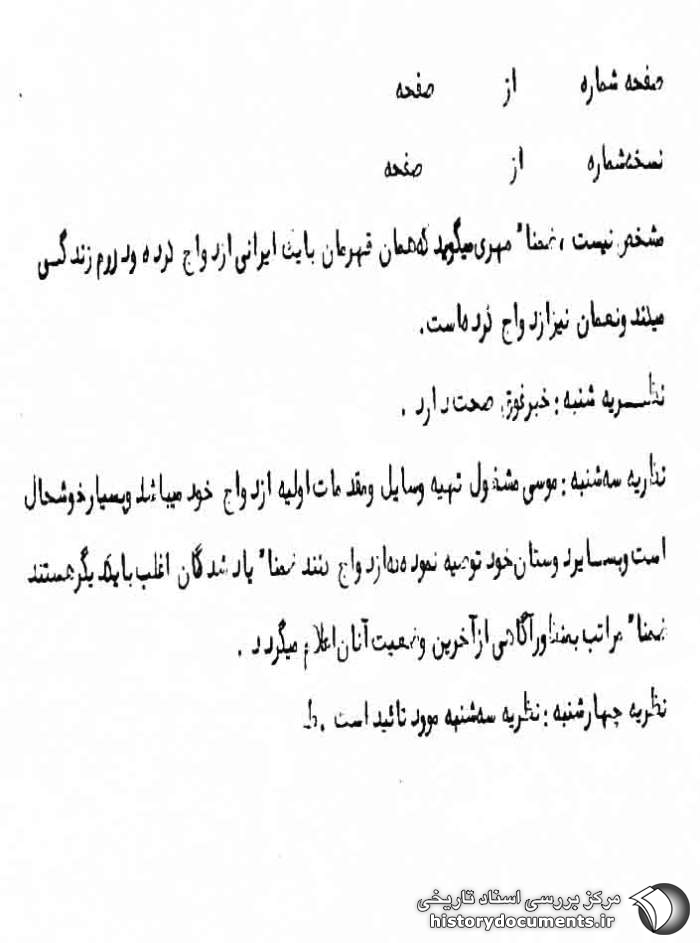 صفحه شماره از صفحه
نسخه‌شماره از صفحه
مشخص نیست ، ضمنا" مهری میگوید که‌همان قهرمان با یک ایرانی ازدواج کرده و در رم زندگــی
میکند و نعمان نیز ازدواج کرده‌است.
نظـــریه شنبه : خبر فوق صحت دارد .
نظریه سه‌شنبه : موسی مشغول تهیه وسایل و مقدمات اولیه ازدواج خود میباشد و بسیار خوشحال
است و بسایر دوستان خود توصیه نموده که ازدواج کنند ضمنا" یاد شدگان اغلب با یکدیگر هستند
ضمنا" مراتب بمنظور آگاهی از آخرین وضعیت آنان اعلام میگردد .
نظریه چهارشنبه : نظریه سه‌شنبه مورد تائید است . ط
مرکز بررسی اسناد تاریخی
historydocuments.ir